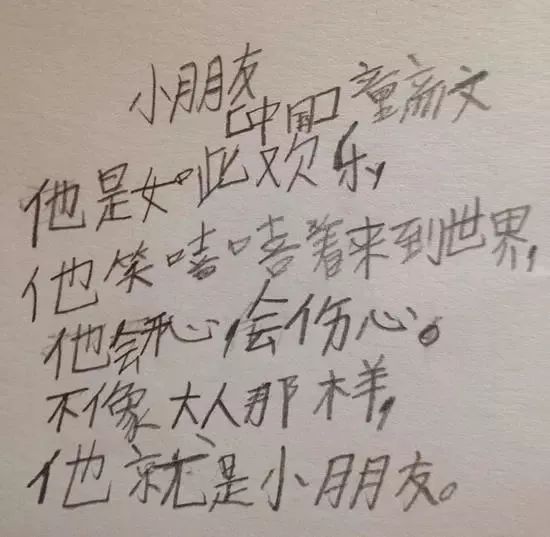 小朋友
[中国]童斋文
他是如此欢乐,
他笑嘻嘻着来到世界,
他会开心,会伤心。
不像大人那样,
他就是小朋友。